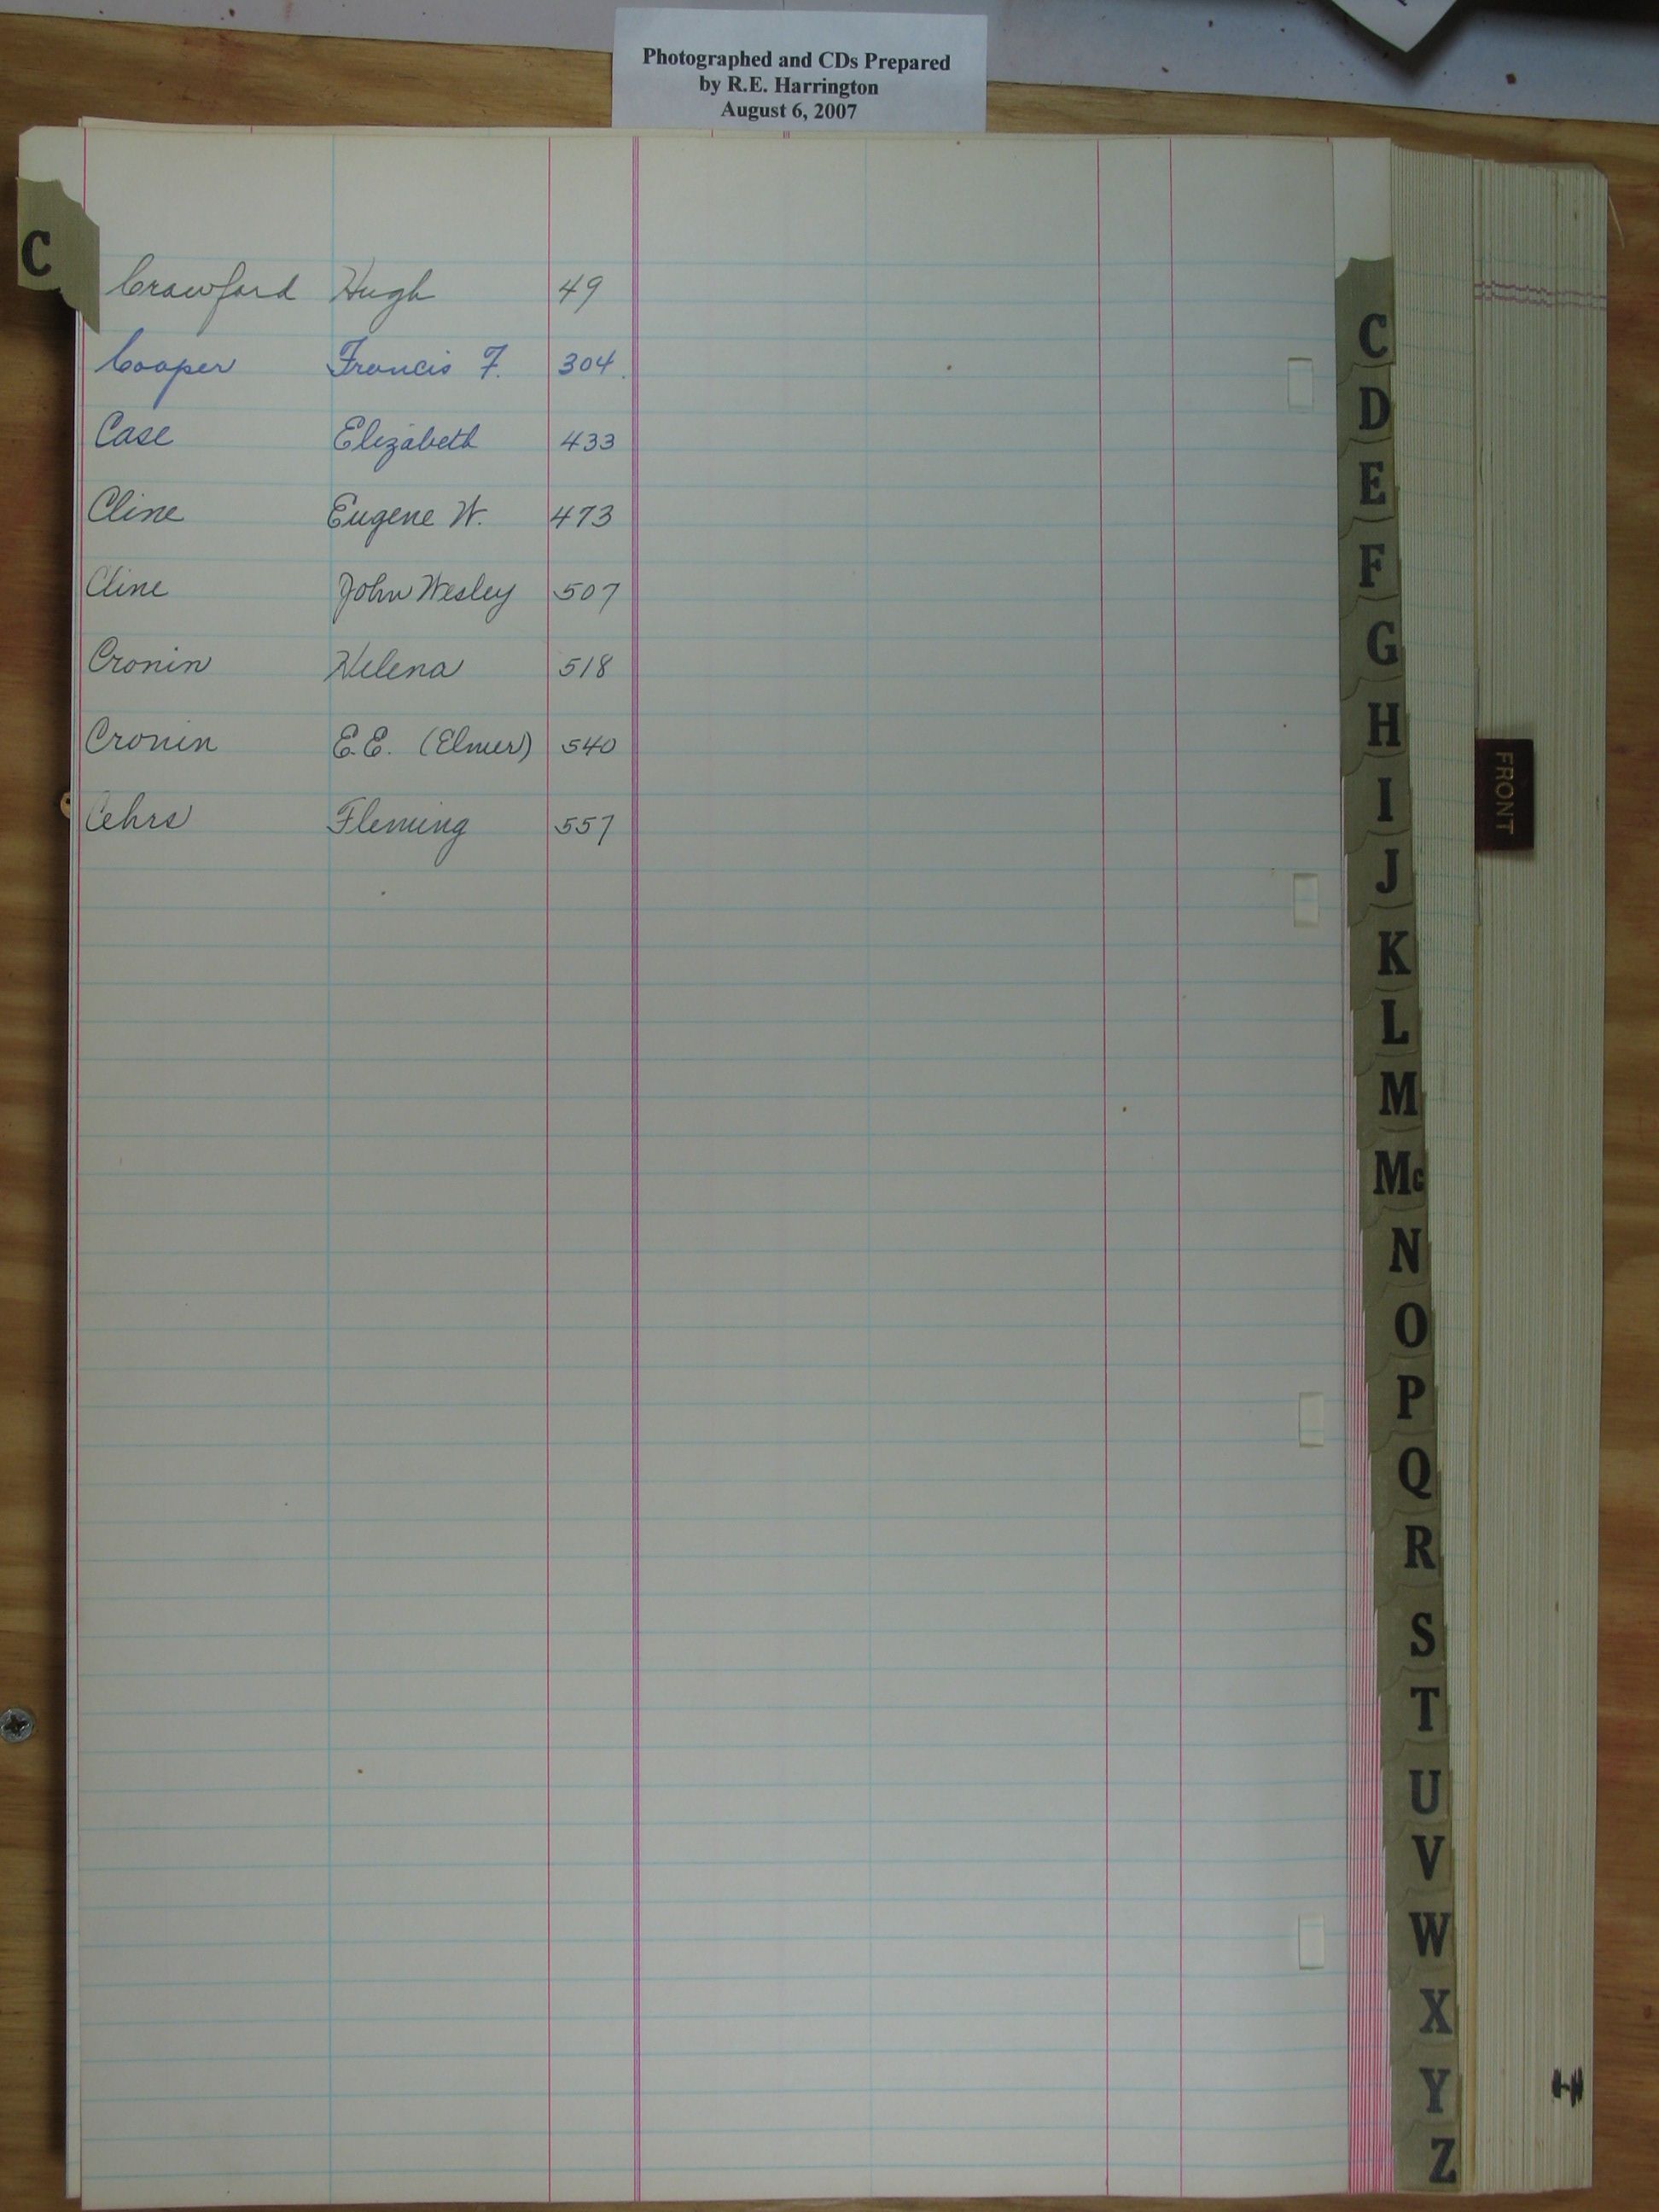 Photographed and CDs Prepared
by R.E. Harrington
August 6, 2007
C
Crawford Hugh 49
Cooper Francis F. 304.
Case Elizabeth 433
Cline Eugene W. 473
Cline John Wesley 507
Cronin Helena 518
Cronin E.E. (Elmer) 540
Cehrs Fleming 557
C
D
E
F
G
H
I
J
K
L
M
Mc
N
O
P
Q
R
S
T
U
V
W
X
Y
Z
FRONT